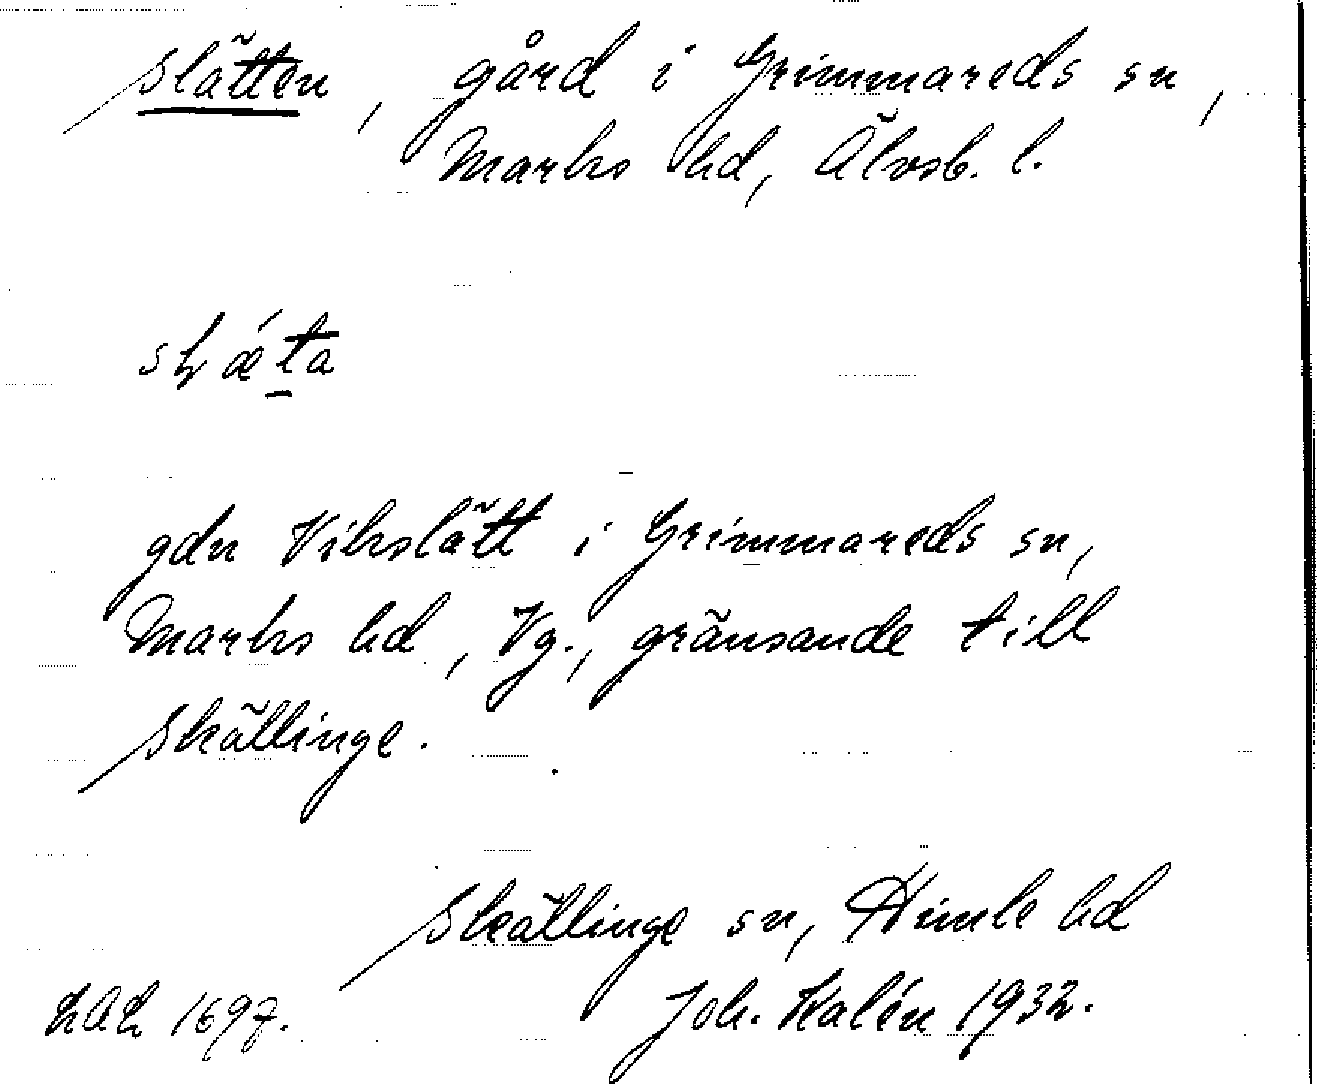 Slätten, gård i Grimmareds sn,
Marks hd, Älvsb. l.
gdn Vikslätt i Grimmareds sn,
Marks hd, Vg., gränsande till
Skällinge.
Skällinge sn, Himle hd
Joh. Kalén 1932.
1697.